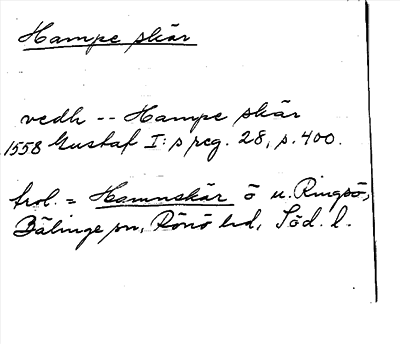 Hampe skär
vedh -- Hampe skär
1558 Gustaf I:s reg. 28, s. 400.
trol. = Hamnskär ö u. Ringsö,
Bälinge sn, Rönö hd, Söd. l.